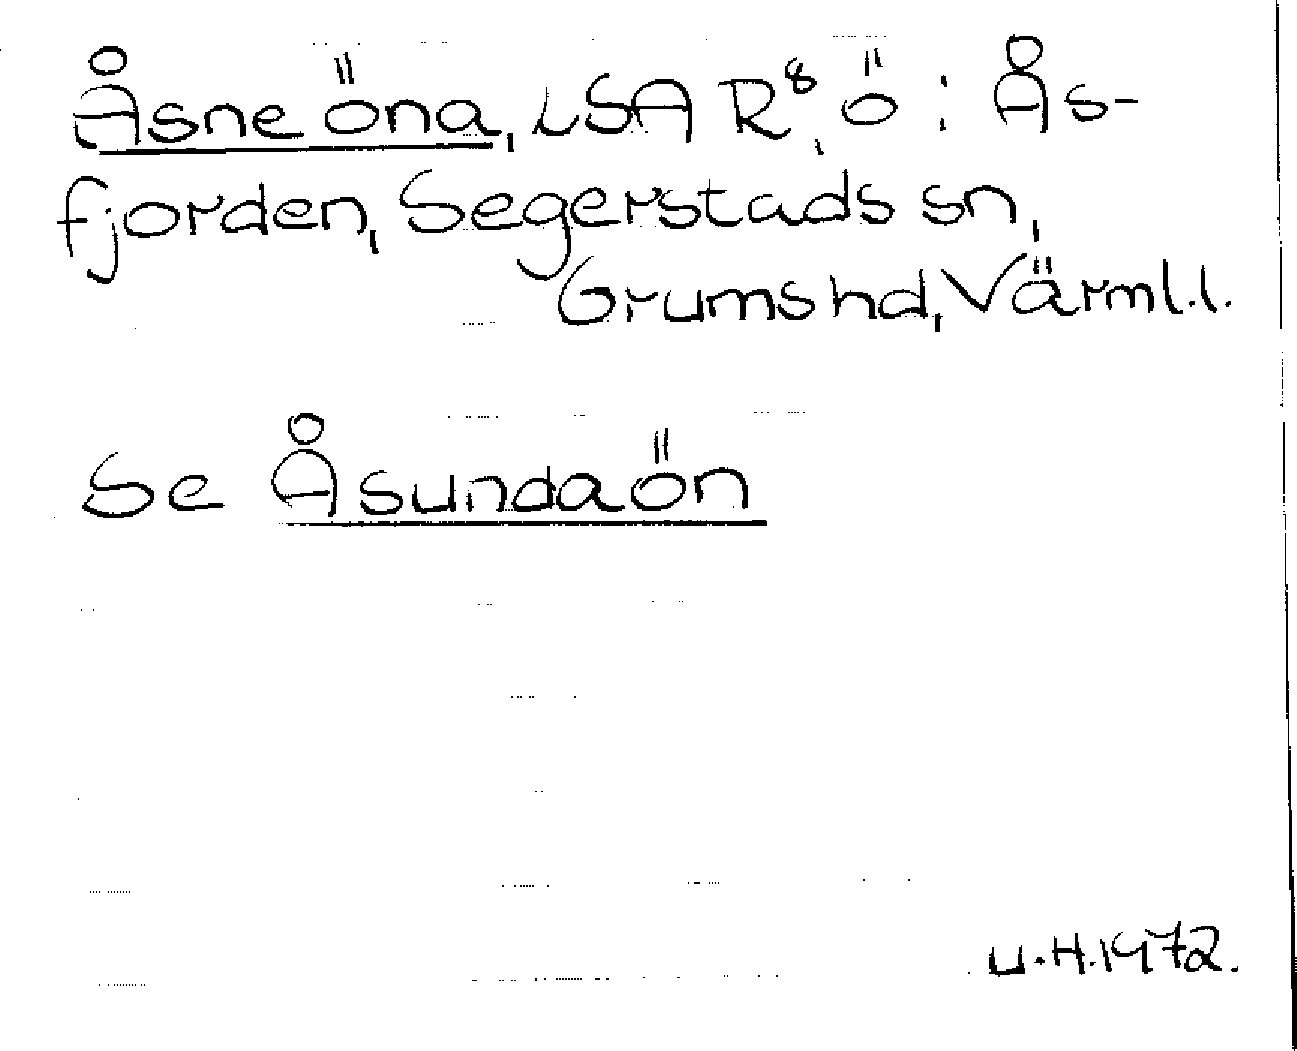 Åsne öna, LSA R⁸, ö i Ås-
fjorden, Segerstads sn,
Grums hd, Värml.l.
Se Åsundaön
U.H.1972.